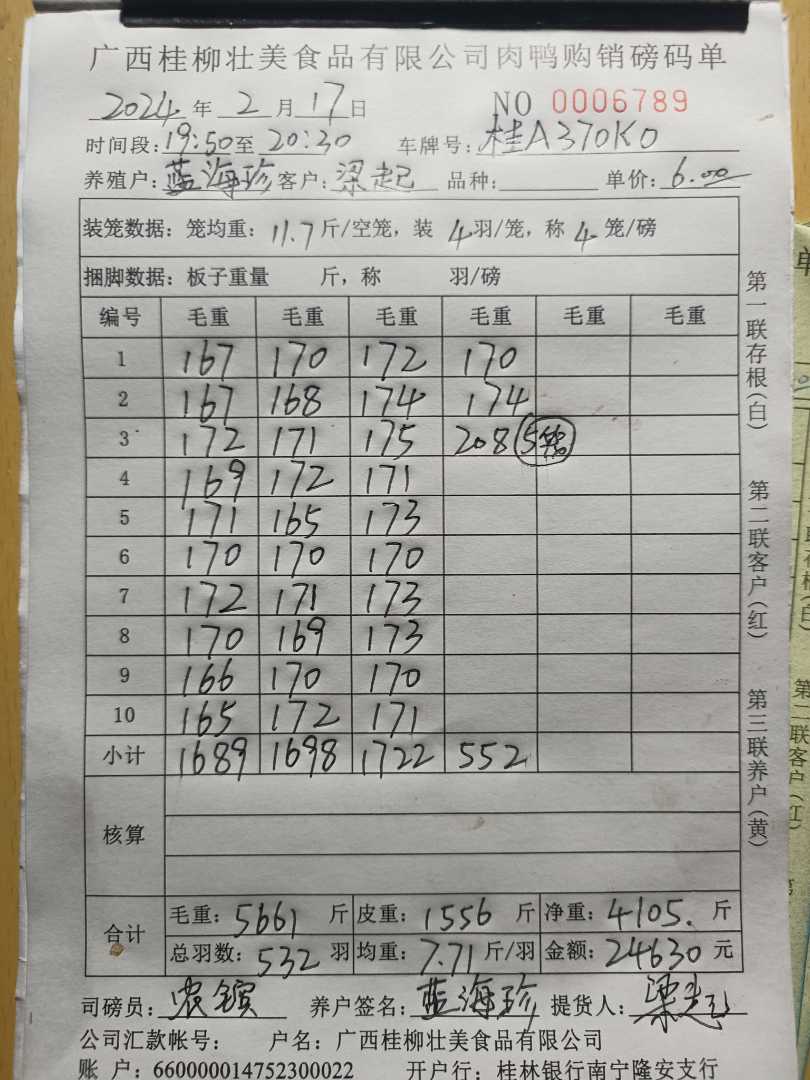 广西桂柳壮美食品有限公司肉鸭购销磅码单
2024 年 2 月 17 日 NO 0006789
时间段: 19:50 至 20:30 车牌号: 桂A370K0
养殖户: 蓝海珍 客户: 梁起 品种: 单价: 6.00
装笼数据: 笼均重: 11.7 斤/空笼, 装 4 羽/笼, 称 4 笼/磅
捆脚数据: 板子重量 斤, 称 羽/磅
编号 毛重 毛重 毛重 毛重 毛重 毛重
1 167 170 172 170
2 167 168 174 174
3 172 171 175 208 5笼
4 169 172 171
5 171 165 173
6 170 170 170
7 172 171 173
8 170 169 173
9 166 170 170
10 165 172 171
小计 1689 1698 1722 552
核算
合计
毛重: 5661 斤 皮重: 1556 斤 净重: 4105. 斤
总羽数: 532 羽 均重: 7.71 斤/羽 金额: 24630 元
司磅员: 农镔 养户签名: 蓝海珍 提货人: 梁起
公司汇款帐号: 户名: 广西桂柳壮美食品有限公司
账 户: 660000014752300022 开户行: 桂林银行南宁隆安支行
第一联存根(白)
第二联客户(红)
第三联养户(黄)